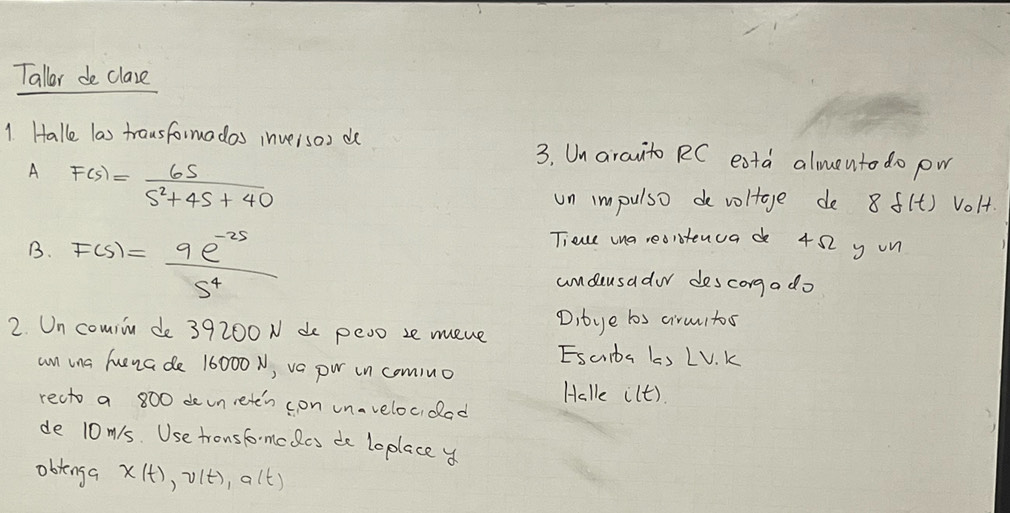 Taller de clase
1 Halle las transformadas inversas de
A F(s) = 6s / s²+4s+40
B. F(s) = 9e^-2s / s⁴
2. Un camión de 39200 N de peso se mueve
con una fuerza de 16000 N, va por un camino
recto a 800 de un retén con una velocidad
de 10 m/s. Use transformadas de laplace y
obtenga x(t), v(t), a(t)
3. Un circuito RC está alimentado por
un impulso de voltaje de 8 δ(t) Volt.
Tiene una resistencia de 4Ω y un
condensador descargado
Dibuje los circuitos
Escriba las LV.K
Halle i(t).